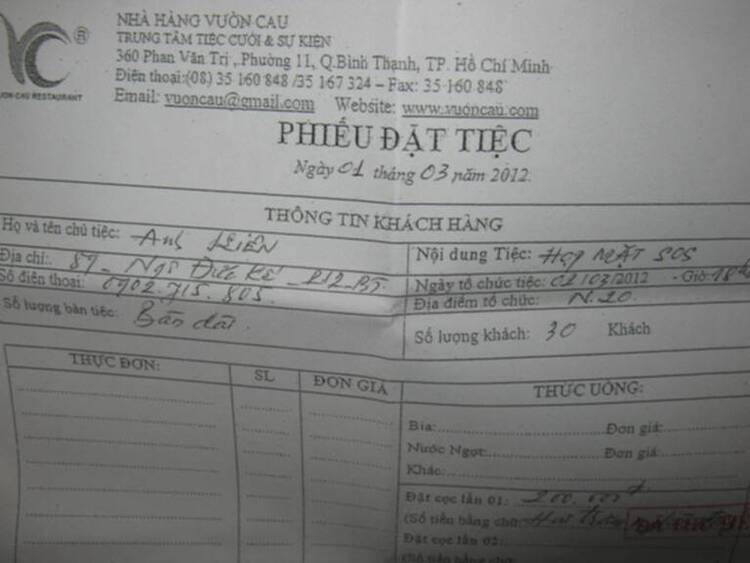 NHÀ HÀNG VƯỜN CAU
TRUNG TÂM TIỆC CƯỚI & SỰ KIỆN
360 Phan Văn Trị , Phường 11, Q.Bình Thạnh, TP. Hồ Chí Minh
Điên thoại:(08) 35 160 848 /35 167 324 – Fax: 35 160 848
Email: vuoncau@gmail.com Website: www.vuoncau.com
VC ®
VUON CAU RESTAURANT
PHIẾU ĐẶT TIỆC
Ngày 01 tháng 03 năm 2012.
THÔNG TIN KHÁCH HÀNG
Họ và tên chủ tiệc: Anh
Nội dung Tiệc: Họp MẶT SOS
Địa chỉ: 89 - Ngô Đức Kế - P12 - BT
Ngày tổ chức tiệc: 02/03/2012 - Giờ: 18h
Số điên thoại: 0902.715.805
Địa điểm tổ chức: N.20
Số lượng bàn tiệc: Bàn dài
Số lượng khách: 30 Khách
THỰC ĐƠN: SL ĐƠN GIÁ THỨC UỐNG:
Bia: Đơn giá:
Nước Ngọt: Đơn giá:
Khác:
Đặt cọc lần 01: 200.000đ
(Số tiền bằng chữ: Hai trăm
ĐÃ THU
Đặt cọc lần 02:
(Số tiền bằng chữ: